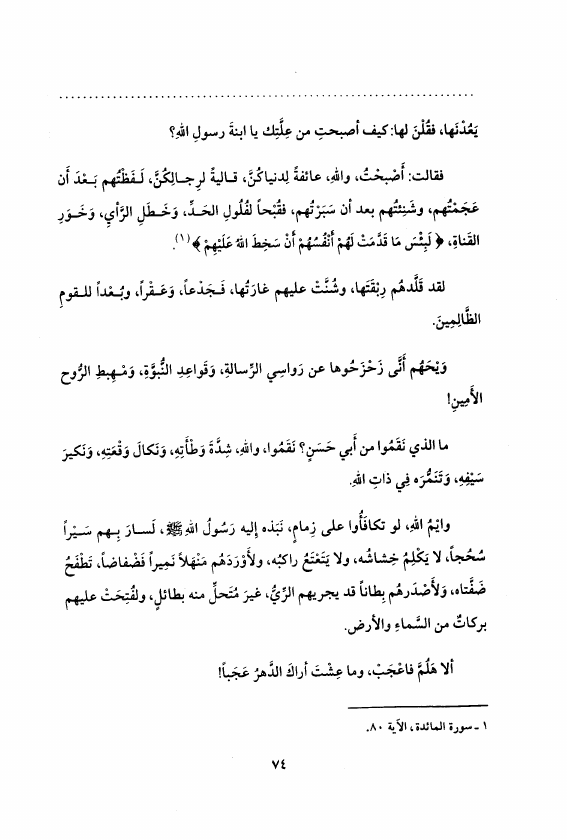 يَعُدْنَها، فقُلْنَ لها: كيف أصبحتِ من عِلَّتِك يا ابنةَ رسولِ اللهِ؟
فقالت: أَصْبَحْتُ، واللهِ، عائفةً لِدنياكُنَّ، قـاليةً لرِجـالِـكُنَّ، لَـفَظْتُهم بَـعْدَ أن
عَجَمْتُهم، وشَنِئتُهم بعد أن سَبَرْتُهم، فقُبْحاً لفُلُولِ الحَـدِّ، وخَـطَلِ الرَّأيِ، وخَـوَرِ
القَناةِ، ﴿ لَبِئْسَ مَا قَدَّمَتْ لَهُمْ أَنْفُسُهُمْ أَنْ سَخِطَ اللهُ عَلَيْهِمْ ﴾(١).
لقد قَلَّدهُم رِبْقَتَها، وشُنَّتْ عليهم غارَتُها، فَـجَدْعاً، وَعَـقْراً، وبُـعْداً للـقومِ
الظَّالِمِينَ.
وَيْحَهُم أَنَّى زَحْزَحُوها عن رَواسِي الرِّسالةِ، وقَواعِدِ النُّبوَّةِ، ومَـهبِطِ الرُّوحِ
الأَمِينِ!
ما الذي نَقَمُوا من أبي حَسَنٍ؟ نَقَمُوا، واللهِ، شِدَّةَ وَطْأَتِهِ، ونَكالَ وَقْعَتِهِ، ونَكيرَ
سَيْفِهِ، وتَنَمُّرَه فِي ذاتِ اللهِ.
وايْمُ اللهِ، لو تكافَأُوا على زِمامٍ، نَبَذه إليه رَسُولُ اللهِ ﷺ، لَسـارَ بِـهِم سَـيْراً
سُجُحاً، لا يَكْلِمُ خِشاشُه، ولا يَتَعْتَعُ راكبُه، ولأَوْرَدَهُم مَنْهَلاً نَمِيراً فَضْفاضاً، تَطْفَحُ
ضَفَّتاه، ولأَصْدَرهُم بِطاناً قد يجريهم الرَّيُّ، غيرَ مُتَحلٍّ منه بطائلٍ، ولفُتِحَتْ عليهم
بركاتٌ من السَّماءِ والأرض.
ألا هَلُمَّ فاعْجَبْ، وما عِشْتَ أراكَ الدَّهرُ عَجَباً!
١ ـ سورة المائدة، الآية ٨٠.
٧٤